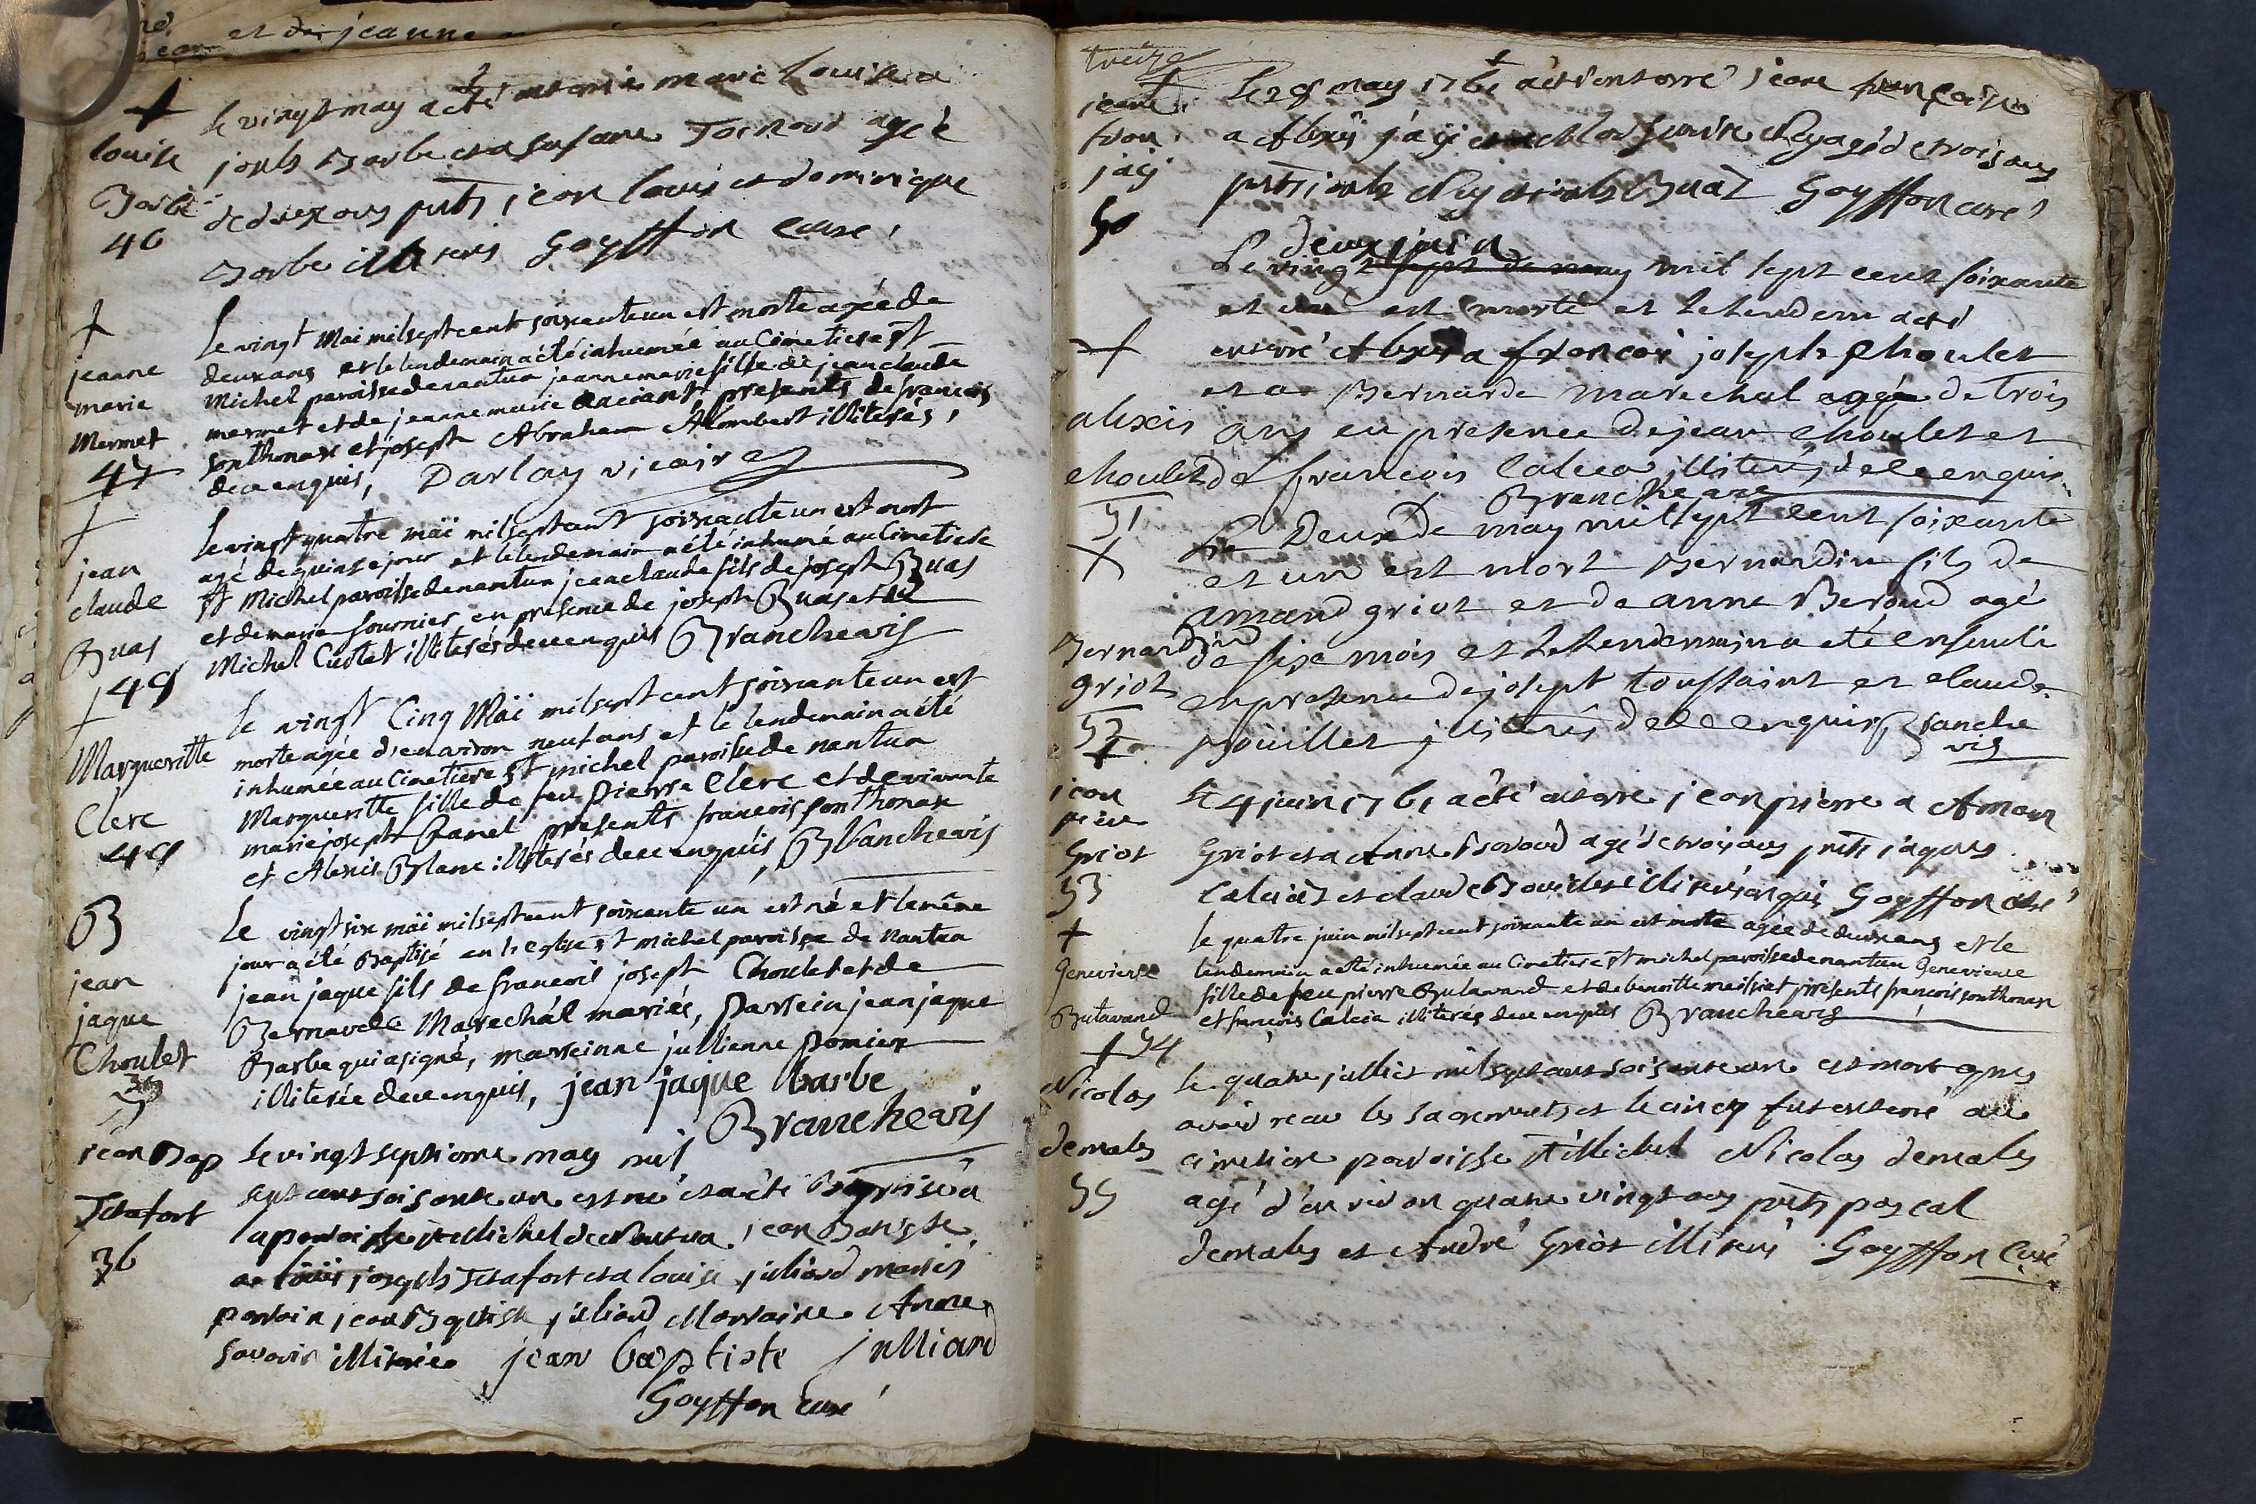 et de jeanne
+
louise
Barbe
46
Le vingt may a été enterrée marie louise a
joseph Barbe et a susane agée
de deux ans puts jean louis et dominique
Barbe illiterés Goyffon curé
+
jeanne
marie
Mermet
47
Le vingt Mai mil sept cent soixante un est morte agée de
deux ans et le lendemain a été inhumée au Cimetiere st
Michel paroisse de nantua jeanne marie fille de jean claude
mermet et de jeanne marie presents de francois
sonthonax et joseph Abraham Alombert illiterés,
de ce enquis, Darlay vicaire
+
jean
claude
Buas
48
Le vingt quatre maï mil sept cent soixante un est mort
agé de quinse jour et le lendemain a été inhumé au Cimetiere
st Michel paroisse de nantua jean claude fils de joseph Buas
et de marie fournier en presence de joseph Buas et de
Michel Curlet illiterés de ce enquis Branchevis
+
Margueritte
Clerc
49
le vingt Cinq Maï mil sept cent soixante un est
morte agée d'environ neuf ans et le lendemain a été
inhumée au Cimetiere st michel paroisse de nantua
Margueritte fille de feu pierre Clerc et de vivante
marie joseph presents francois sonthonax
et Alexis Blanc illiterés de ce enquis, Branchevis
B
jean
jaque
Choulet
35
Le vingt six maï mil sept cent soixante un est né et le même
jour a été Baptisé en l'eglise st michel paroisse de Nantua
jean jaque fils de francois joseph Choulet et de
Bernarde Marechal mariés, parrein jean jaque
Barbe qui a signé, marreinne jullienne pomier
illiterée de ce enquis, jean jaque barbe
Branchevis
jean Bap
Tetafort
36
Le vingt septieme may mil
sept cent soisante un est né et a été Baptisé a
la paroisse st Michel de Nantua jean Batiste
a louïs joseph Tetafort et a louise julliard mariés
parrain jean Baptiste julliard Marraine Anne
savarin illiterée jean baptiste julliard
Goyffon curé
treize
+
jean
fran
jagy
50
Le 28 may 1761 a été enterré jean françois
a Alexis jagy et a agé de trois ans
puts joseph et joseph Buaz Goyffon curé
deux juin
Le vingt sept de may mil sept cent soixante
et un est morte et le lendem a été
enterré Alexis a françois joseph Choulet
et a Bernarde marechal agée de trois
ans en presence de jean choulet et
de françois Calcia illiterés de ce enquis
Branchevis
+
alexis
choulet
51
+
Bernardin
griot
52
Le Deux de may mil sept cent soixante
et un est mort Bernardin fils de
amand griot et de anne Beroud agé
de six mois et le lendemain a eté enseveli
en presence de joseph toussaint et claude
illiterés de ce enquis Branche
vis
+
jean
pierre
Griot
53
Le 4 juin 1761 a été enterré jean pierre a Aman
Griot et a Anne Beroud agé de trois ans puts jaques
Calciat et claude illiterés enquis Goyffon curé
+
Genevieve
Butavand
54
le quatre juin mil sept cent soixante un est morte agée de deux ans et le
lendemain a été inhumée au Cimetiere st michel paroisse de nantua Genevieve
fille de feu pierre Butavand et de benoitte maissiat presents francois sonthonax
et francois Calcia illiterés de ce enquis Branchevis
+
Nicolas
demales
55
Le quatre juillet mil sept cent soisante un est mort apres
avoir receu les sacrements et le cinq fut enterré au
cimetiere paroisse st Michel Nicolas demales
agé d'environ quatre vingt ans puts pascal
demales et André Griot illiterés Goyffon Curé